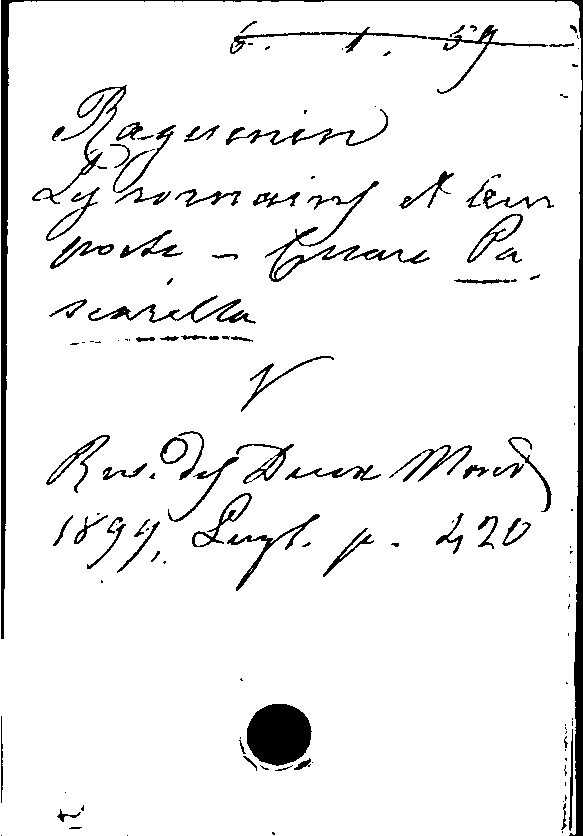 6. 1. 59
Raguenin
Les romains et leur
poete - Cesare Pa
scarella
V
Rev. des Deux Mond
1899, Sept. p. 420